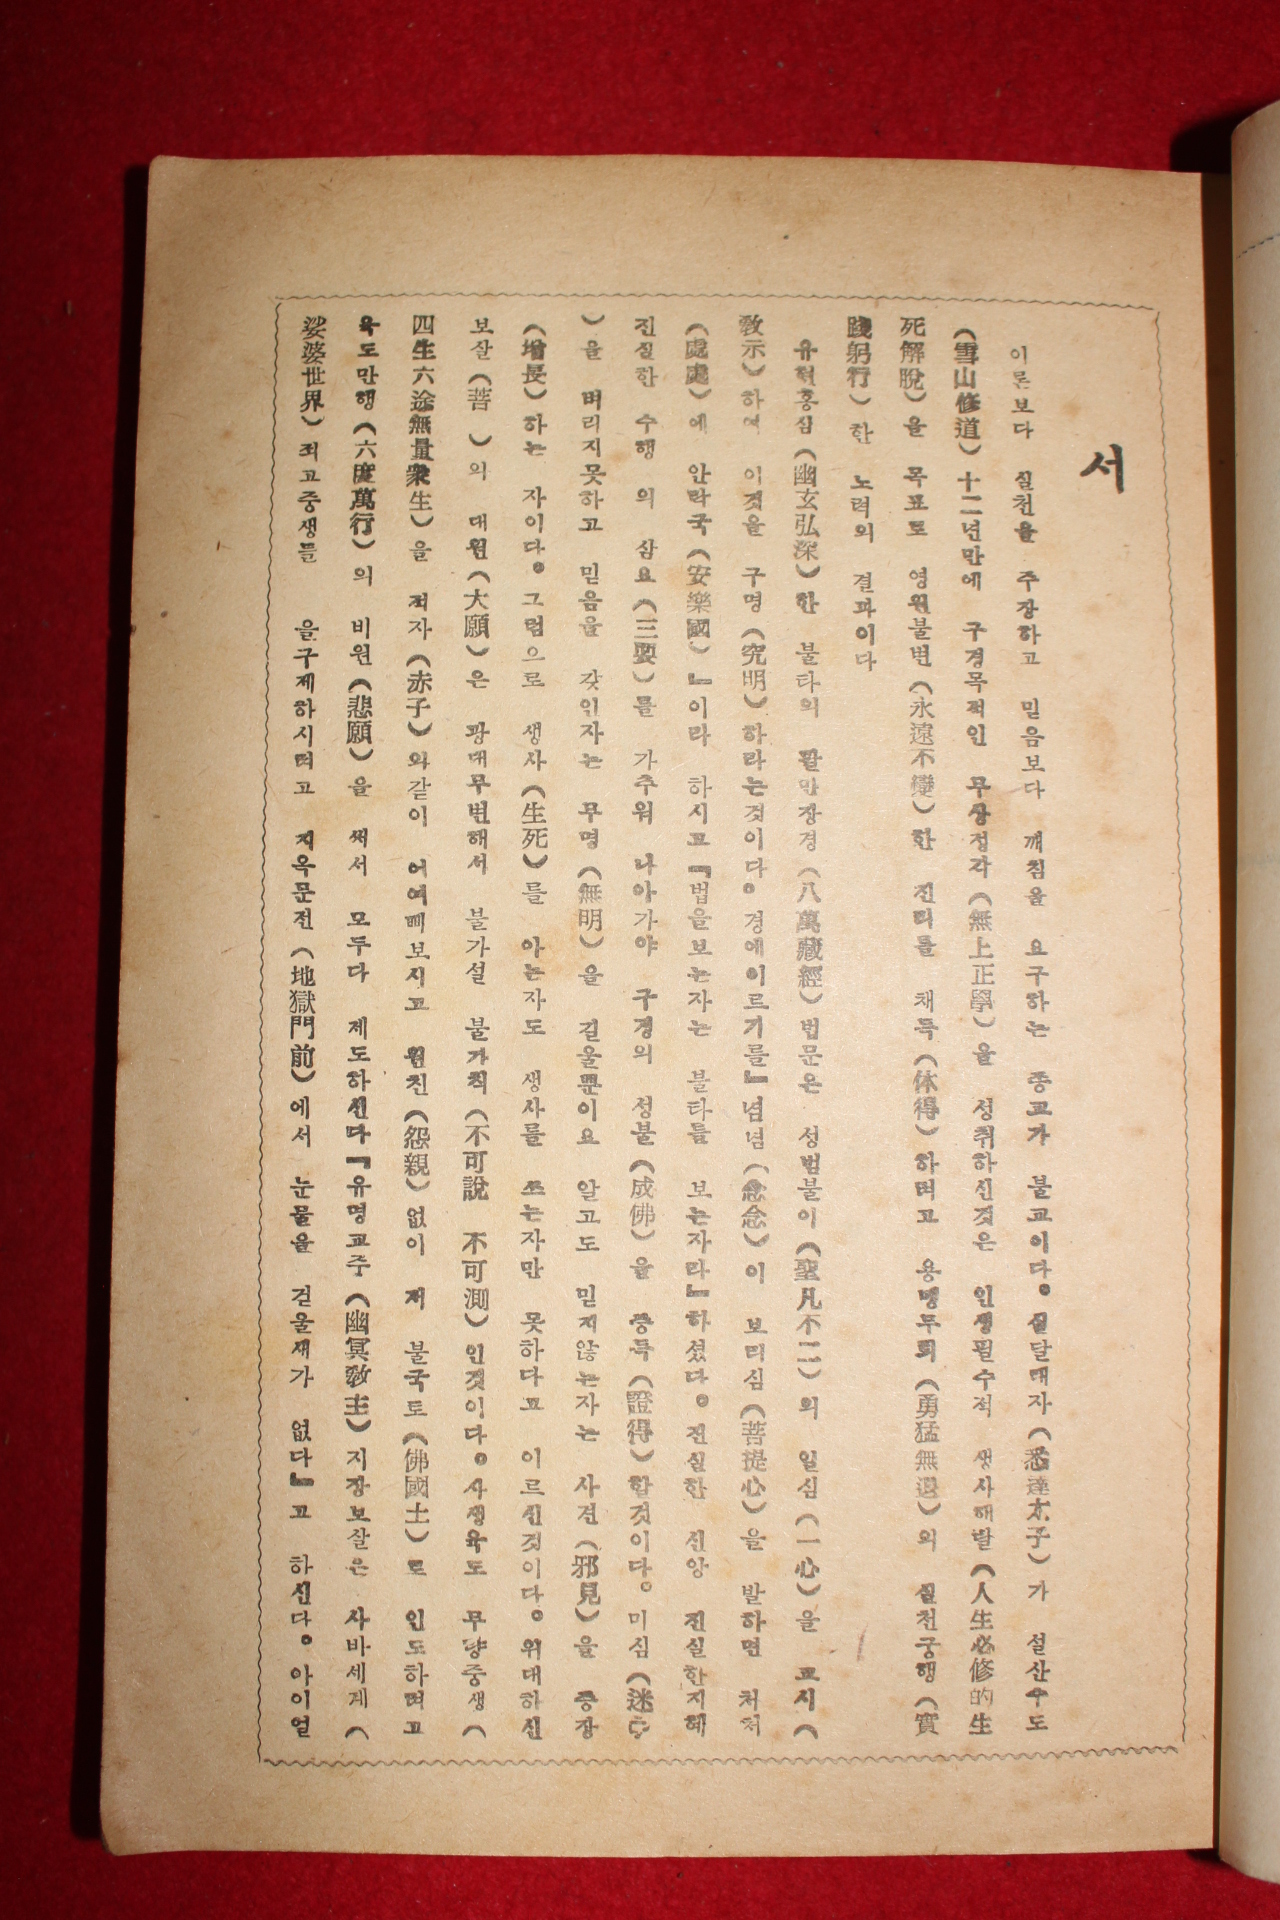 서
이론보다 실천을 주장하고 믿음보다 깨침을 요구하는 종교가 불교이다。실달태자(悉達太子)가 설산수도
(雪山修道)十二년만에 구경목적인 무상정각(無上正學)을 성취하신것은 인생필수적 생사해탈(人生必修的生
死解脫)을 목표로 영원불변(永遠不變)한 진리를 채득(休得)하며고 용맹무퇴(勇猛無退)의 실천궁행(實
踐躬行)한 노력의 결과이다
유현홍심(幽玄弘深)한 불타의 팔만장경(八萬藏經)법문은 성범불이(聖凡不二)의 일심(一心)을 교시(
敎示)하여 이것을 구명(究明)하라는것이다。경에이르기를『념념(念念)이 보리심(菩提心)을 발하면 처처
(處處)에 안락국(安樂國)』이라 하시고『법을보는자는 불타를 보는자라』하셨다。진실한 신앙 진실한지혜
진실한 수행의 삼요(三要)를 가추워 나아가야 구경의 성불(成佛)을 증득(證得)할것이다。미심(迷
)을 버리지못하고 믿음을 갖인자는 무명(無明)을 길울뿐이요 알고도 믿지않는자는 사견(邪見)을 증장
(增長)하는 자이다。그럼으로 생사(生死)를 아는자도 생사를 쓰는자만 못하다고 이르신것이다。위대하신
보살(菩 )의 대원(大願)은 광대무변해서 불가설 불가칙(不可說 不可測)인것이다。사생육도 무량중생(
四生六途無量衆生)을 적자(赤子)와같이 어여삐보시고 원친(怨親)없이 저 불국토(佛國土)로 인도하며고
육도만행(六度萬行)의 비원(悲願)을 쎄서 모두다 제도하신다『유명교주(幽冥敎主)지장보살은 사바세계(
娑婆世界)죄고중생들 을구제하시려고 지옥문전(地獄門前)에서 눈물을 걷울새가 없다』고 하신다。아이얼